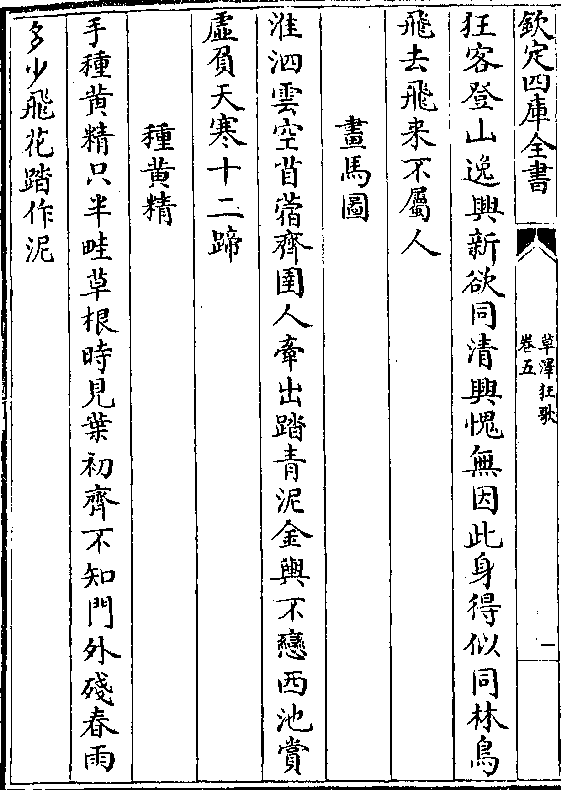 欽定四庫全書
草澤狂歌
卷五
一
狂客登山逸興新欲同清興愧無因此身得似同林鳥
飛去飛来不屬人
畫馬圖
淮泗雲空苜蓿齊圉人牽出踏青泥金輿不戀西池賞
虛負天寒十二蹄
種黄精
手種黄精只半畦草根時見葉初齊不知門外殘春雨
多少飛花踏作泥